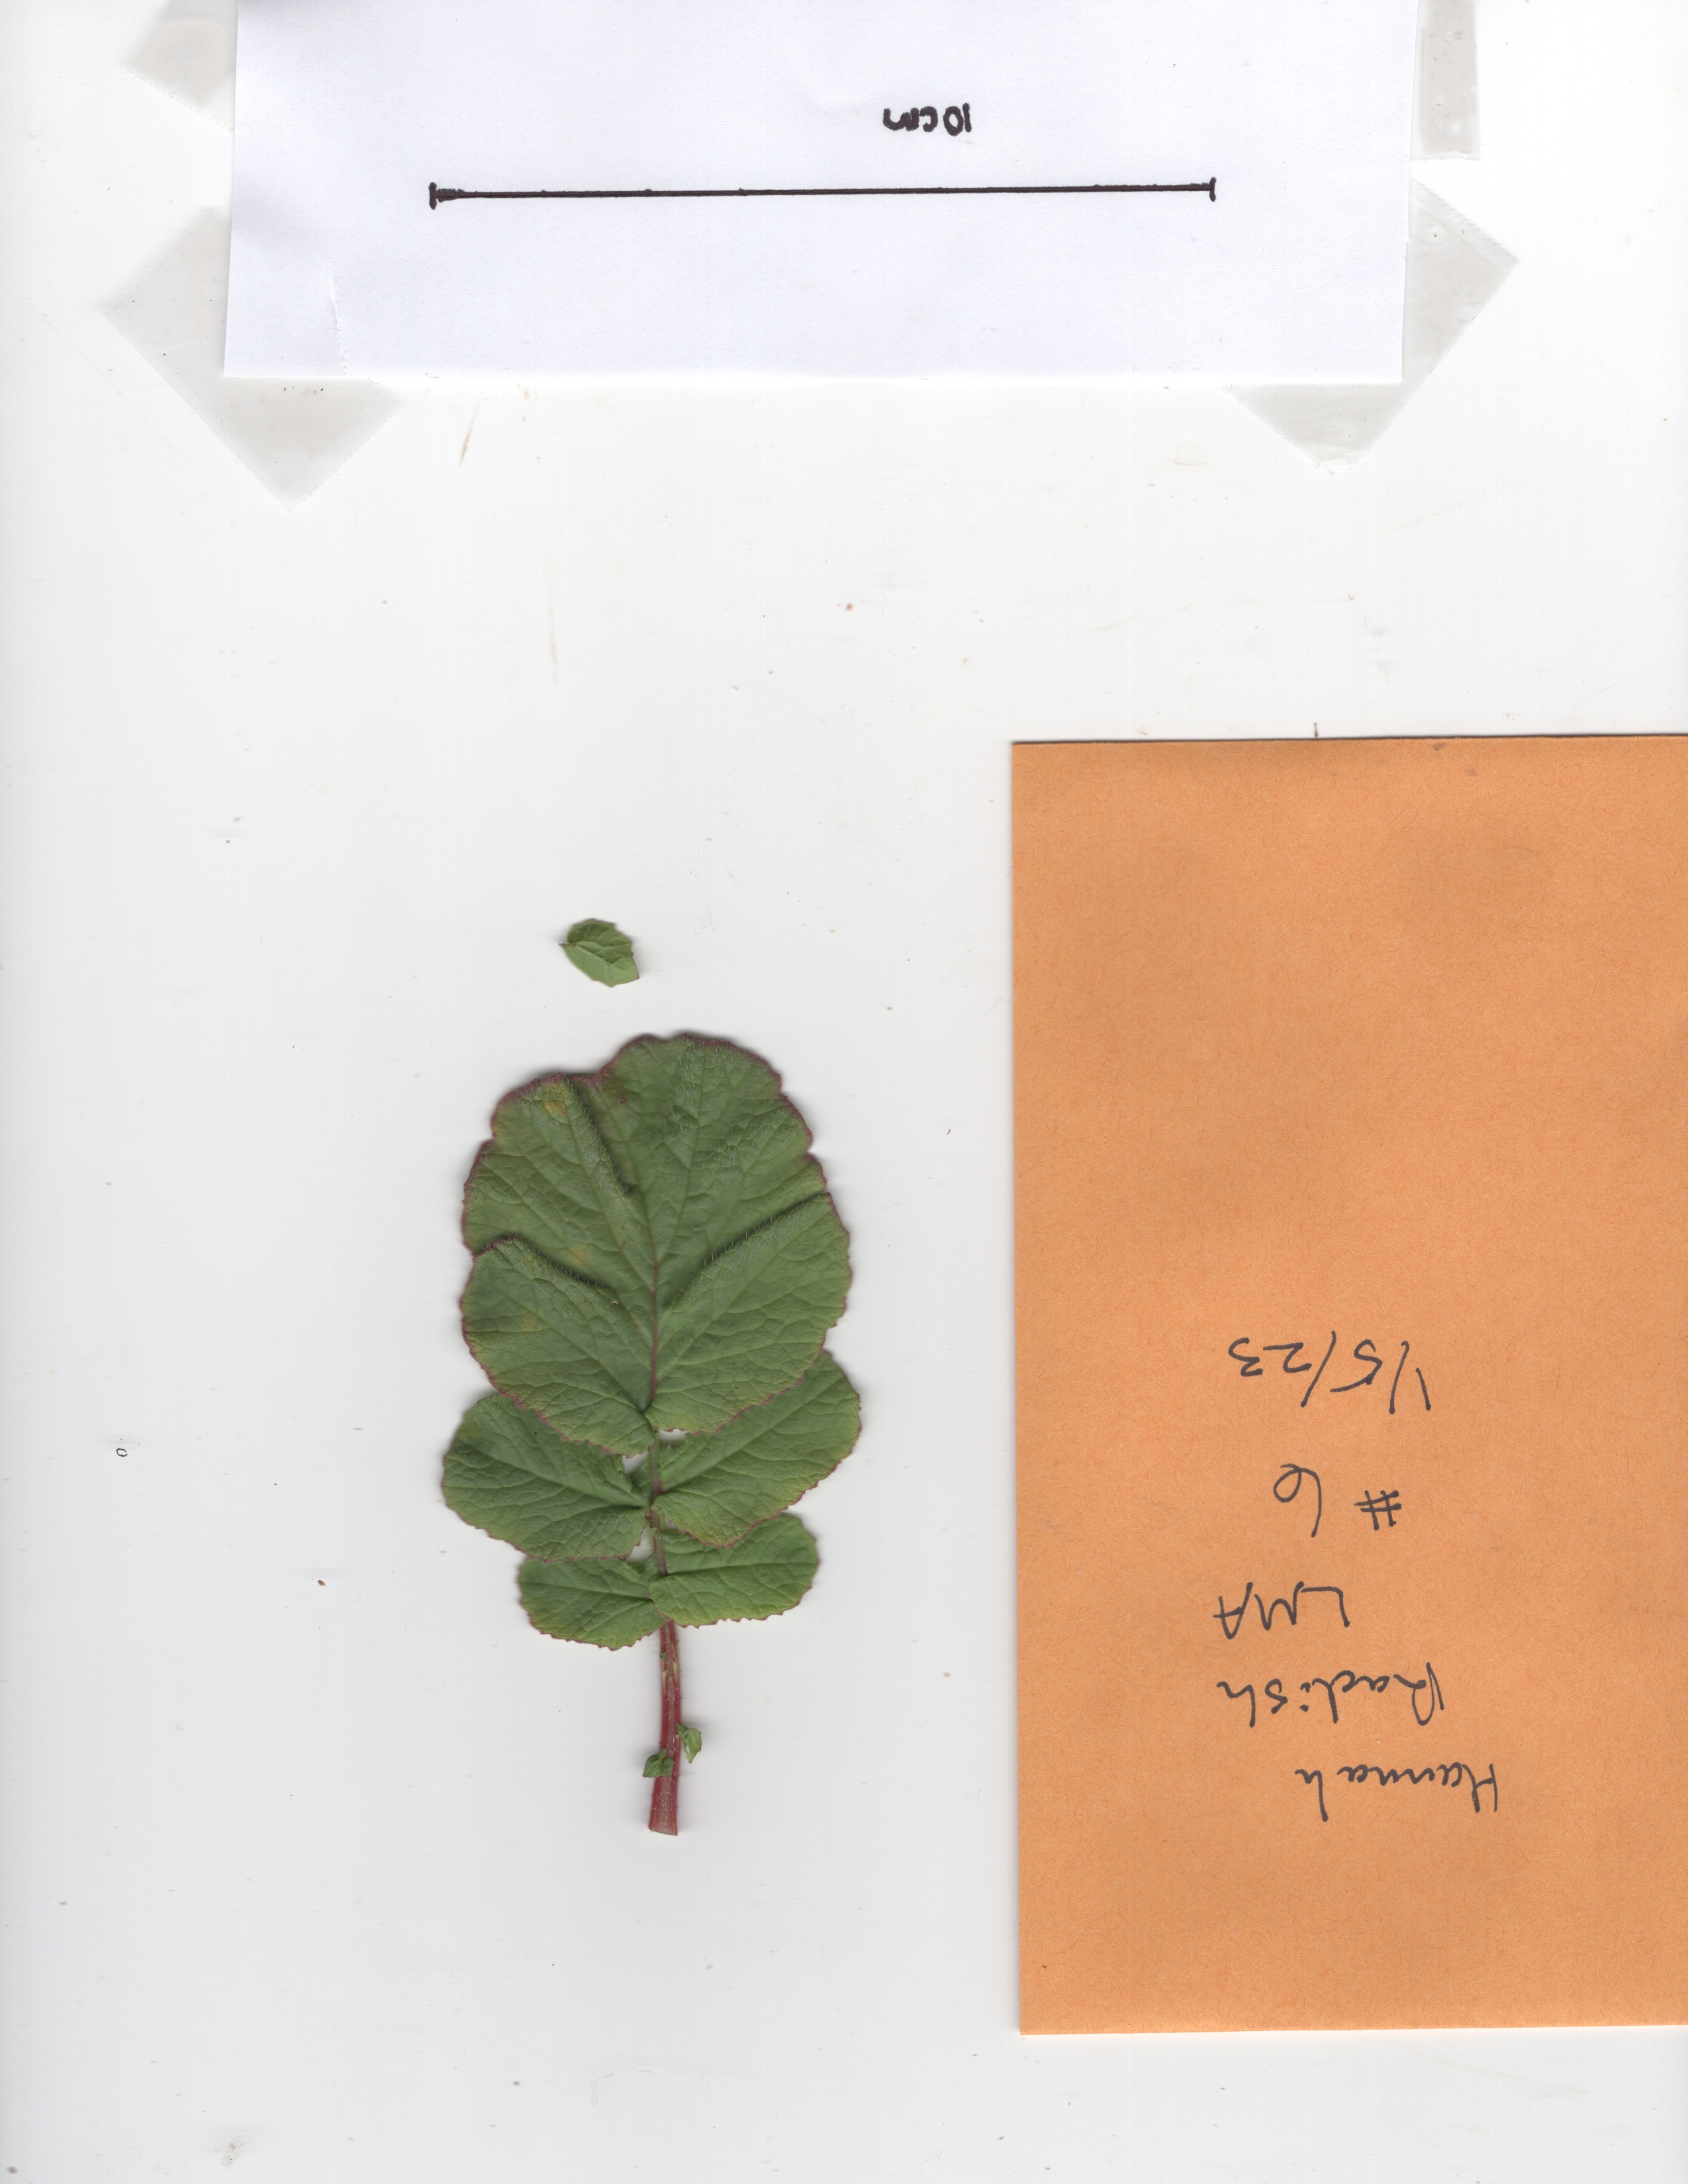 10 cm
Hannah
Radish
LMA
# 6
1/5/23